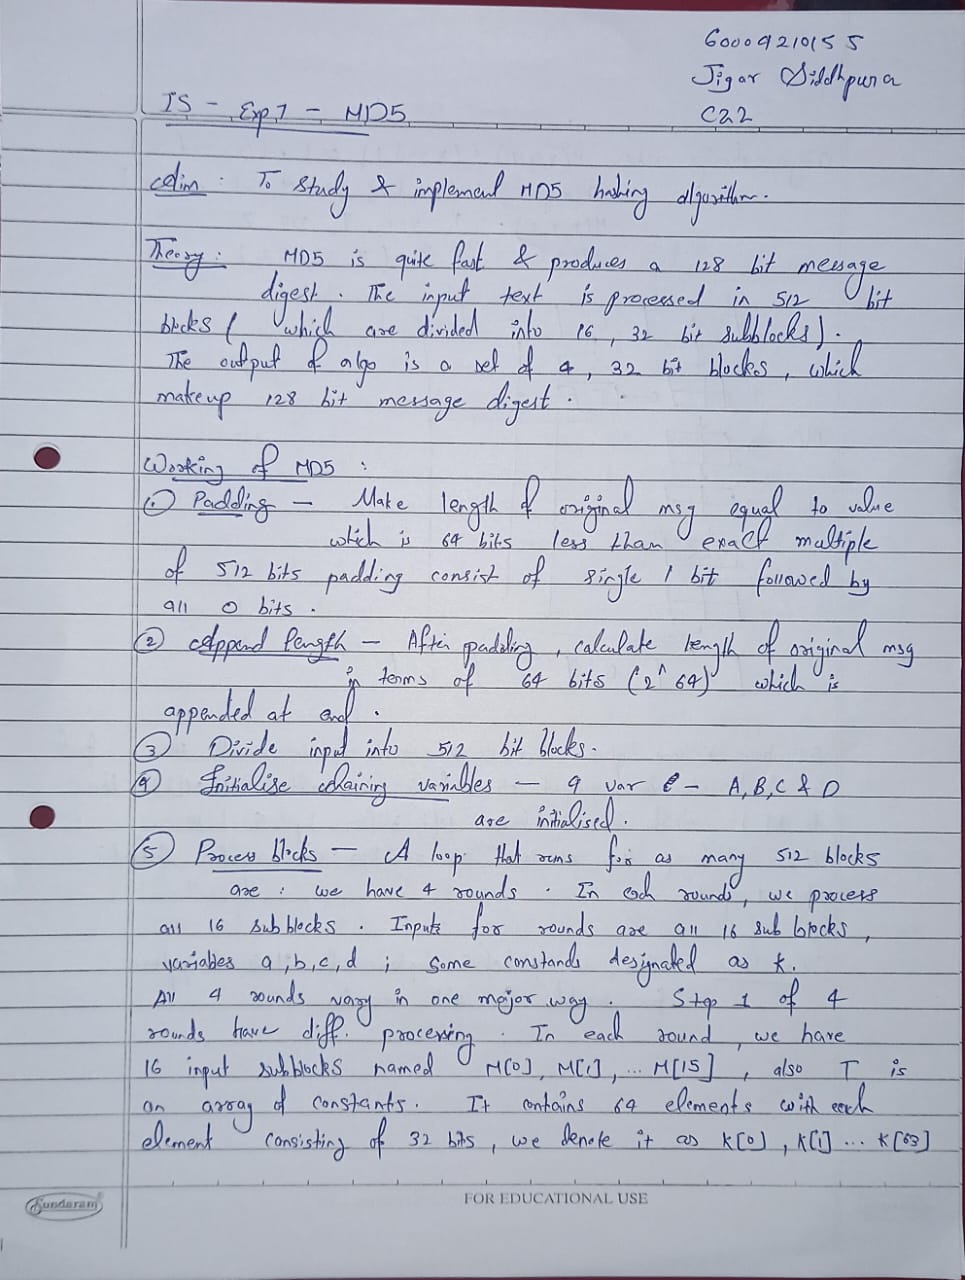 60009210155
Jigar Siddhpura
C22
IS - Exp 7 - MD5
Aim : To study & implement MD5 hashing algorithm.
Theory : MD5 is quite fast & produces a 128 bit message
digest. The input text is processed in 512 bit
blocks ( which are divided into 16 , 32 bit subblocks).
The output of algo is a set of 4, 32 bit blocks, which
makeup 128 bit message digest.
Working of MD5 :
① Padding - Make length of original msg equal to value
which is 64 bits less than exact multiple
of 512 bits padding consist of single 1 bit followed by
all 0 bits.
② Append length - After padding, calculate length of original msg
in terms of 64 bits (2^64) which is
appended at end.
③ Divide input into 512 bit blocks.
④ Initialise chaining variables - 4 var - A, B, C & D
are initialised.
⑤ Process blocks - A loop that runs for as many 512 blocks
are : we have 4 rounds. In each rounds, we process
all 16 sub blocks. Inputs for rounds are all 16 sub blocks,
variables a, b, c, d ; some constands designated as k.
All 4 rounds vary in one major way. Step 1 of 4
rounds have diff. processing. In each round, we have
16 input subblocks named M[0], M[1], ... M[15], also T is
an array of constants. It contains 64 elements with each
element consisting of 32 bits, we denote it as K[0], K[1] ... K[63]
Sundaram
FOR EDUCATIONAL USE